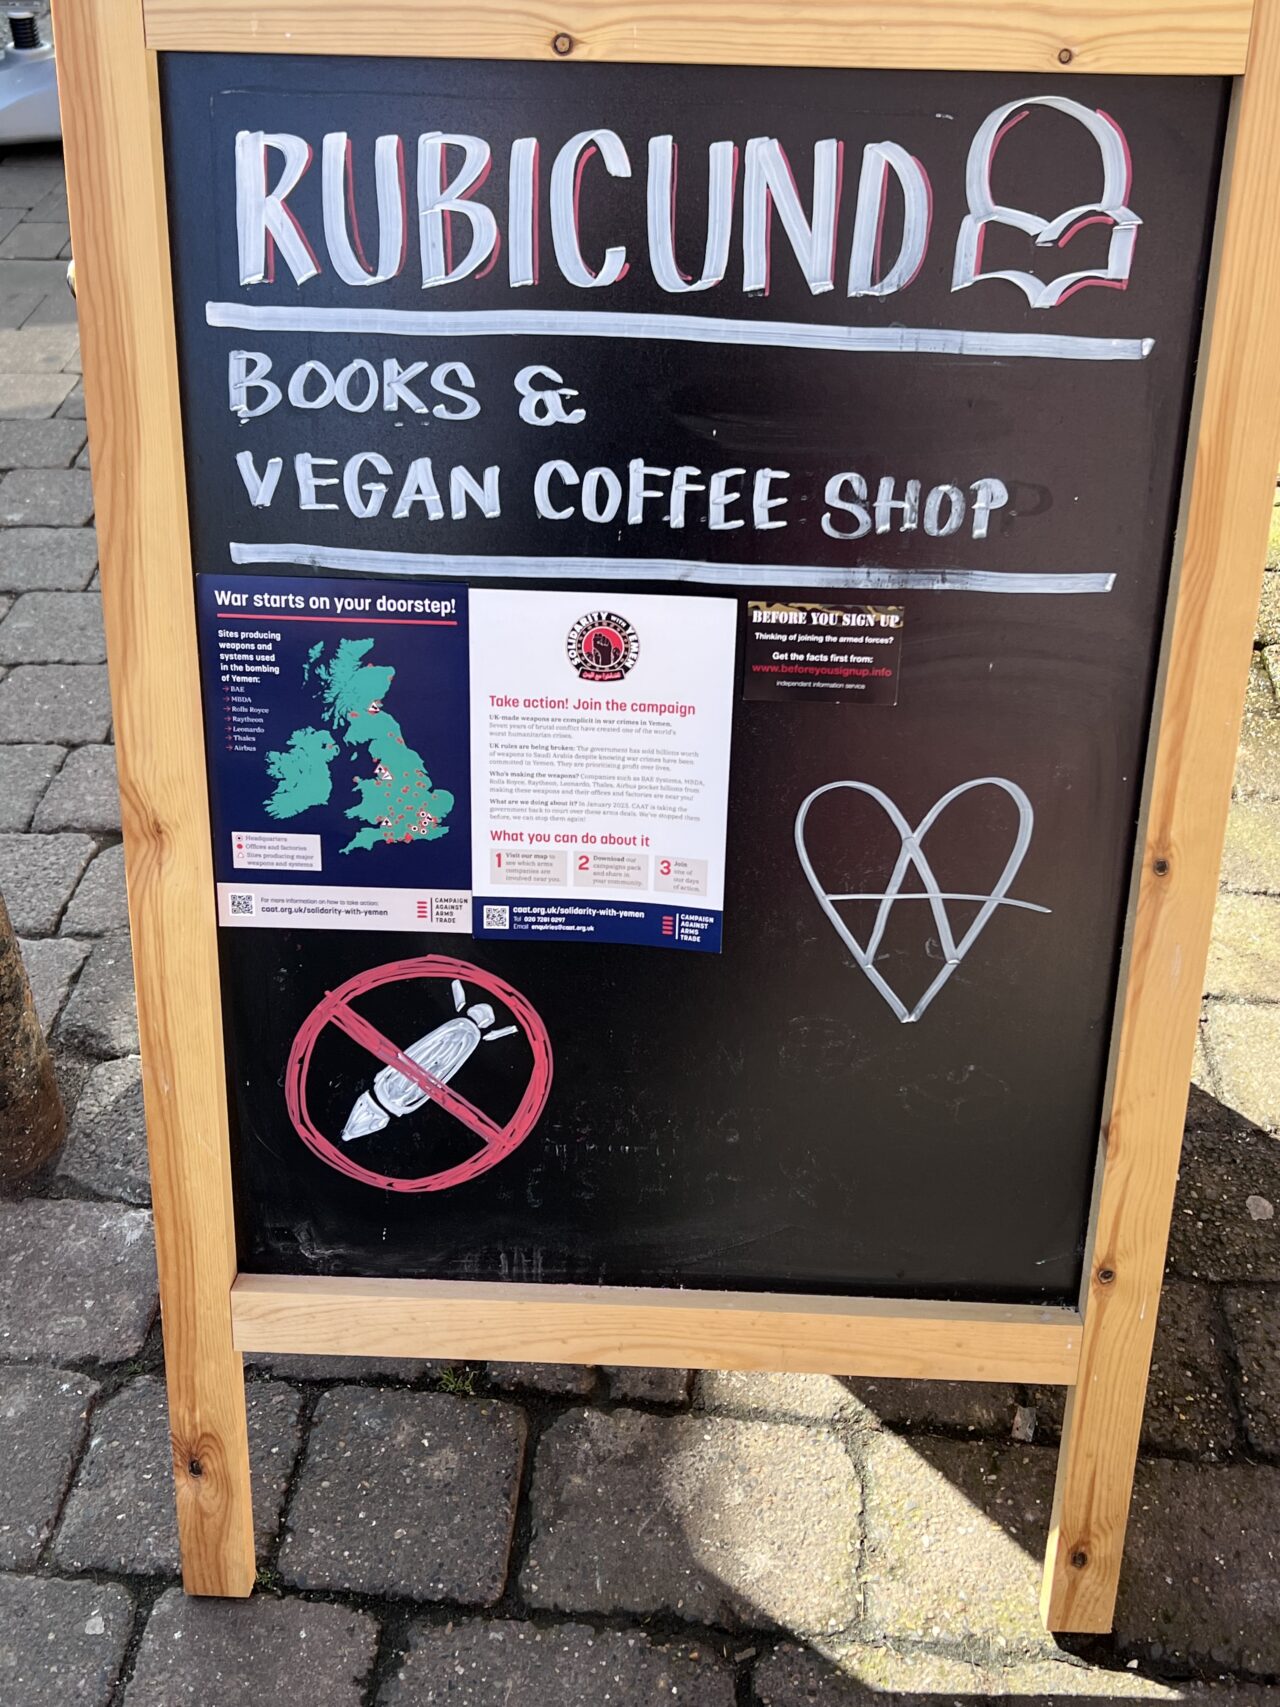 RUBICUND
BOOKS &
VEGAN COFFEE SHOP
War starts on your doorstep!
Sites producing
weapons and
systems used
in the bombing
of Yemen:
→ BAE
→ MBDA
→ Rolls Royce
→ Raytheon
→ Leonardo
→ Thales
→ Airbus
Headquarters
Offices and factories
Sites producing major
weapons and systems
For more information on how to take action:
caat.org.uk/solidarity-with-yemen
CAMPAIGN
AGAINST
ARMS
TRADE
SOLIDARITY WITH YEMEN
Take action! Join the campaign
UK-made weapons are complicit in war crimes in Yemen.
Seven years of brutal conflict have created one of the world's
worst humanitarian crises.
UK rules are being broken: The government has sold billions worth
of weapons to Saudi Arabia despite knowing war crimes have been
committed in Yemen. They are prioritising profit over lives.
Who's making the weapons? Companies such as BAE Systems, MBDA,
Rolls Royce, Raytheon, Leonardo, Thales, Airbus pocket billions from
making these weapons and their offices and factories are near you!
What are we doing about it? In January 2023, CAAT is taking the
government back to court over these arms deals. We've stopped them
before, we can stop them again!
What you can do about it
1 Visit our map to
see which arms
companies are
involved near you.
2 Download our
campaigns pack
and share in
your community.
3 Join
one of
our days
of action.
caat.org.uk/solidarity-with-yemen
Tel 020 7281 0297
Email enquiries@caat.org.uk
CAMPAIGN
AGAINST
ARMS
TRADE
BEFORE YOU SIGN UP
Thinking of joining the armed forces?
Get the facts first from:
www.beforeyousignup.info
independent information service
A